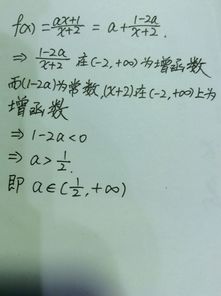 f(x) = \frac{ax+1}{x+2} = a + \frac{1-2a}{x+2}.
⇒ \frac{1-2a}{x+2} 在(-2, +∞)为增函数
而(1-2a)为常数,(x+2)在(-2,+∞)上为
增函数
⇒ 1-2a<0
⇒ a>\frac{1}{2}.
即 a∈(\frac{1}{2},+∞)